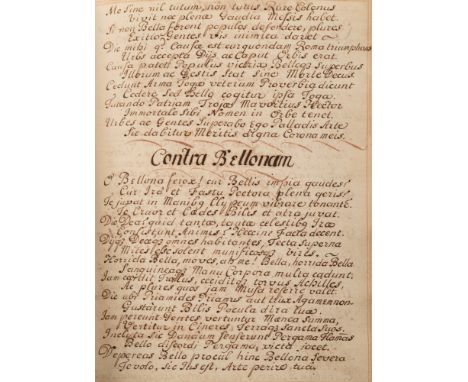 Me Sine nil tutum, non tutus Rure Colonus
Vivit nec plenæ Gaudia Messis habet.
Si non Bella forent populos defendere, plures
Exitio Gentes vis inimica daret
Dic mihi qs Causa est cur quondam Roma triumphans
Urbs accepta Diis ac Caput Orbis erat.
Causa patet! Populus victriæ Bellogs Superbus
Illorum ac Gestis Stat Sine Morte Decus.
Cedunt Arma Togæ veterum Proverbia dicunt
Cedere Sed Bello cogitur ipsa Toga.
Tutando Patriam Trojæ Mavortius Hector
Immortale Sibi Nomen in Orbe tenet.
Urbes ac Gentes Superabo Ego Palladis Arte
Sic dabitur Meritis digna Corona meis.
Contra Bellonam
O Bellona ferox! cur Bellis impia gaudes!
Cur Iræ et Fastu Pectora plena geris!
Te juvat in Manibg Clypeum vibrare tonantē
Te Cruor et Cædes Bilis et atra juvat.
Dic Dea! quid tantæ, tantæ celestibg Iræ
Consistunt Animis! Hæccins Facta decent.
Diigs Deags omnes habitantes, Tecta Superna
Mites esse Solent munificosgs viros.
Horrida Bella, moves, ah me! Bella, horrida Bella
Sanguineags Manu Corpora multa cadunt;
Jam cecidit Tallus, cecidit torvus Achilles,
Ac plures quos jam Musa referre valet.
Dic ubi Priamides Priamus aut Dux Agamemnon
Gustarunt Bilis Pocula dira tuæ.
Jam pereunt Gentes vertuntur Mænia Summa,
Vertitur in Cineres Terrags Sancta Suos.
Incluta Sic Danaum Senserunt Pergama Flamas
Bello discordi Pergama, victa jacet.
Depereas Bello procul hinc Bellona Severa
Te volo, Sic Jus est, Arte perire, tua.